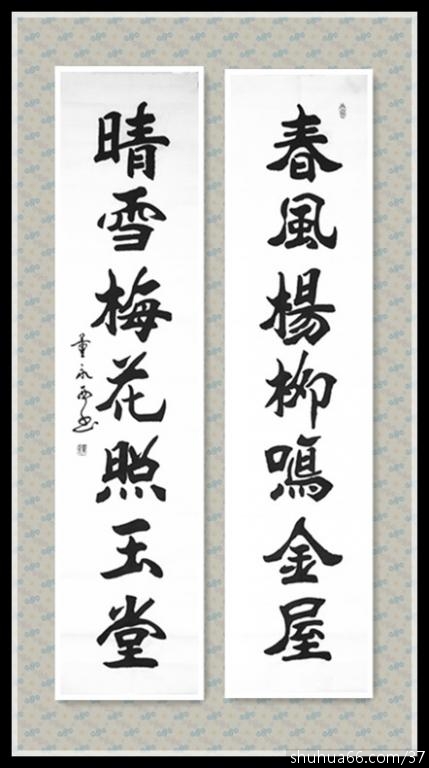 春風楊柳鳴金屋
晴雪梅花照玉堂
shuhua66.com/37